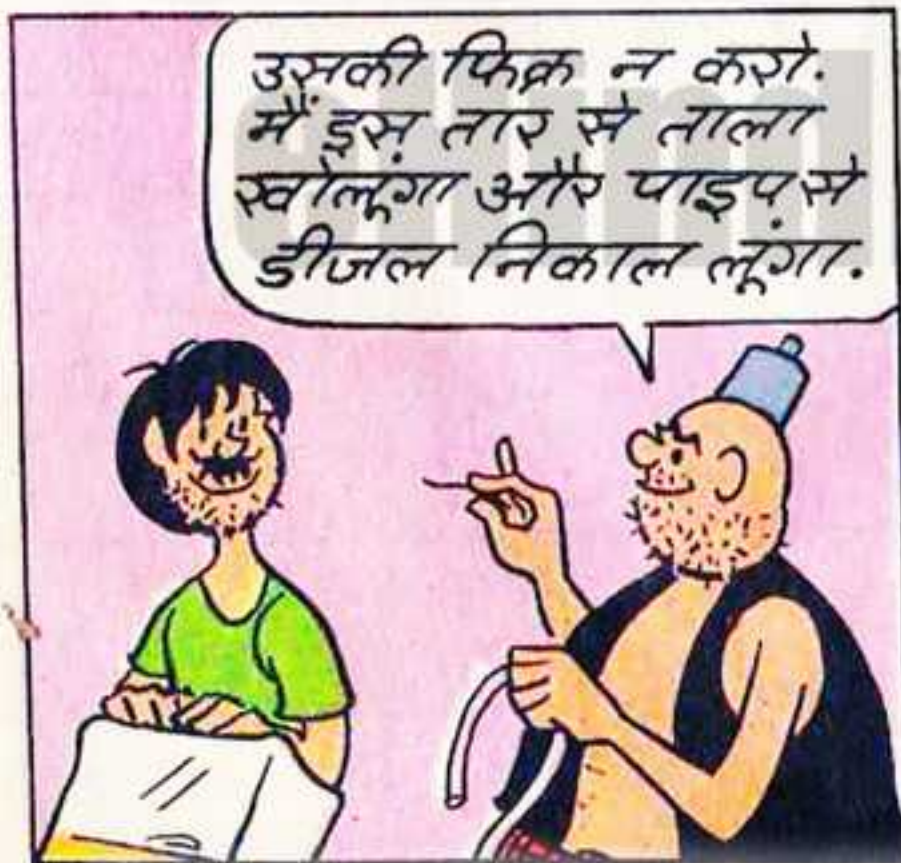 उसकी फिक्र न करो.
मैं इस तार से ताला
खोलूंगा और पाइप से
डीजल निकाल लूंगा.